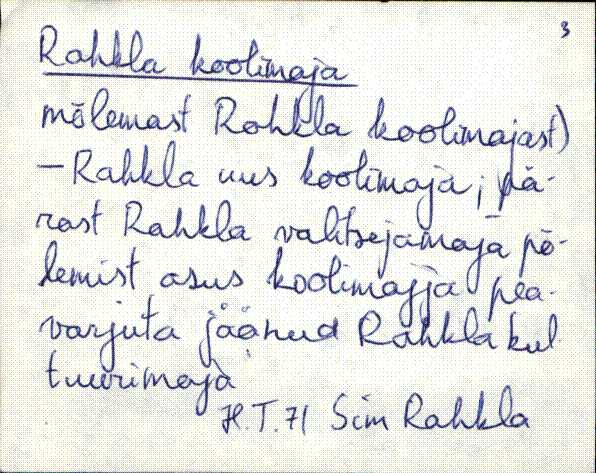 3
Rahkla koolimaja
mõlemast Rahkla koolimajast)
— Rahkla uus koolimaja; pä-
rast Rahkla valitsejamaja põ-
lemist asus koolimajja pea-
varjuta jäänud Rahkla kul
tuurimaja
H.T.71 Sim Rahkla